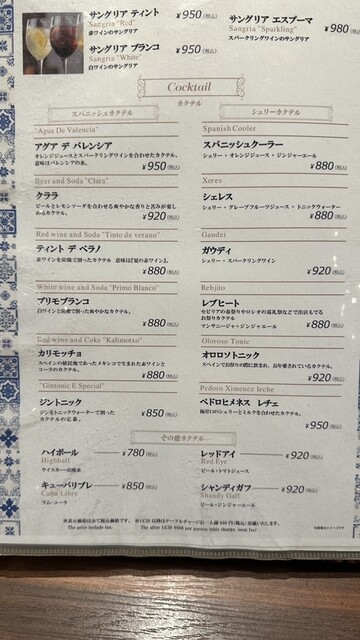 サングリア ティント ¥950(税込)
Sangria "Red"
赤ワインのサングリア
サングリア ブランコ ¥950(税込)
Sangria "White"
白ワインのサングリア
サングリア エスプーマ ¥980(税込)
Sangria "Sparkling"
スパークリングワインのサングリア
Cocktail
カクテル
スパニッシュカクテル
"Agua De Valencia"
アグア デ バレンシア
オレンジジュースとスパークリングワインを合わせたカクテル。
意味はバレンシアの水。
¥950(税込)
Beer and Soda "Clara"
クララ
ビールとレモンソーダを合わせる爽やかな香りと苦みが楽し
めるカクテル。
¥920(税込)
Red wine and Soda "Tinto de verano"
ティント デ ベラノ
赤ワインを炭酸で割ったカクテル 意味は『夏の赤ワイン』。
¥880(税込)
White wine and Soda "Primo Blanco"
プリモブランコ
白ワインと炭酸で割った爽やかなカクテル。
¥880(税込)
Red wine and Coke "Kalimotxo"
カリモッチョ
スペインの植民地であったメキシコで生まれた赤ワインと
コーラのカクテル。
¥880(税込)
"Gintonic E Special"
ジントニック ¥850(税込)
ジンをトニックウォーターで割った
カクテルの定番。
シェリーカクテル
Spanish Cooler
スパニッシュクーラー
シェリー・オレンジジュース・ジンジャーエール
¥880(税込)
Xeres
シェレス
シェリー・グレープフルーツジュース・トニックウォーター
¥880(税込)
Gaudei
ガウディ
シェリー・スパークリングワイン
¥920(税込)
Rebjito
レブヒート
セビリアの春祭りやロシオの巡礼祭などで出店もでる
お祭りカクテル
マンサニージャ・ジンジャエール ¥880(税込)
Oloroso Tonic
オロロソトニック
スペインでお祭りの際に飲まれ、お年愛されているカクテル。
¥920(税込)
Pedoro Ximenez leche
ペドロヒメネス レチェ
極甘口のシェリーとミルクを合わせたカクテル。
¥950(税込)
その他カクテル
ハイボール ¥780(税込)
Highball
ウイスキー・炭酸水
キューバリブレ ¥850(税込)
Cuba Libre
ラム・コーラ
レッドアイ ¥920(税込)
Red Eye
ビール・トマトジュース
シャンディガフ ¥920(税込)
Shandy Gaff
ビール・ジンジャーエール
※表示価格は全て税込価格です。
The price include tax.